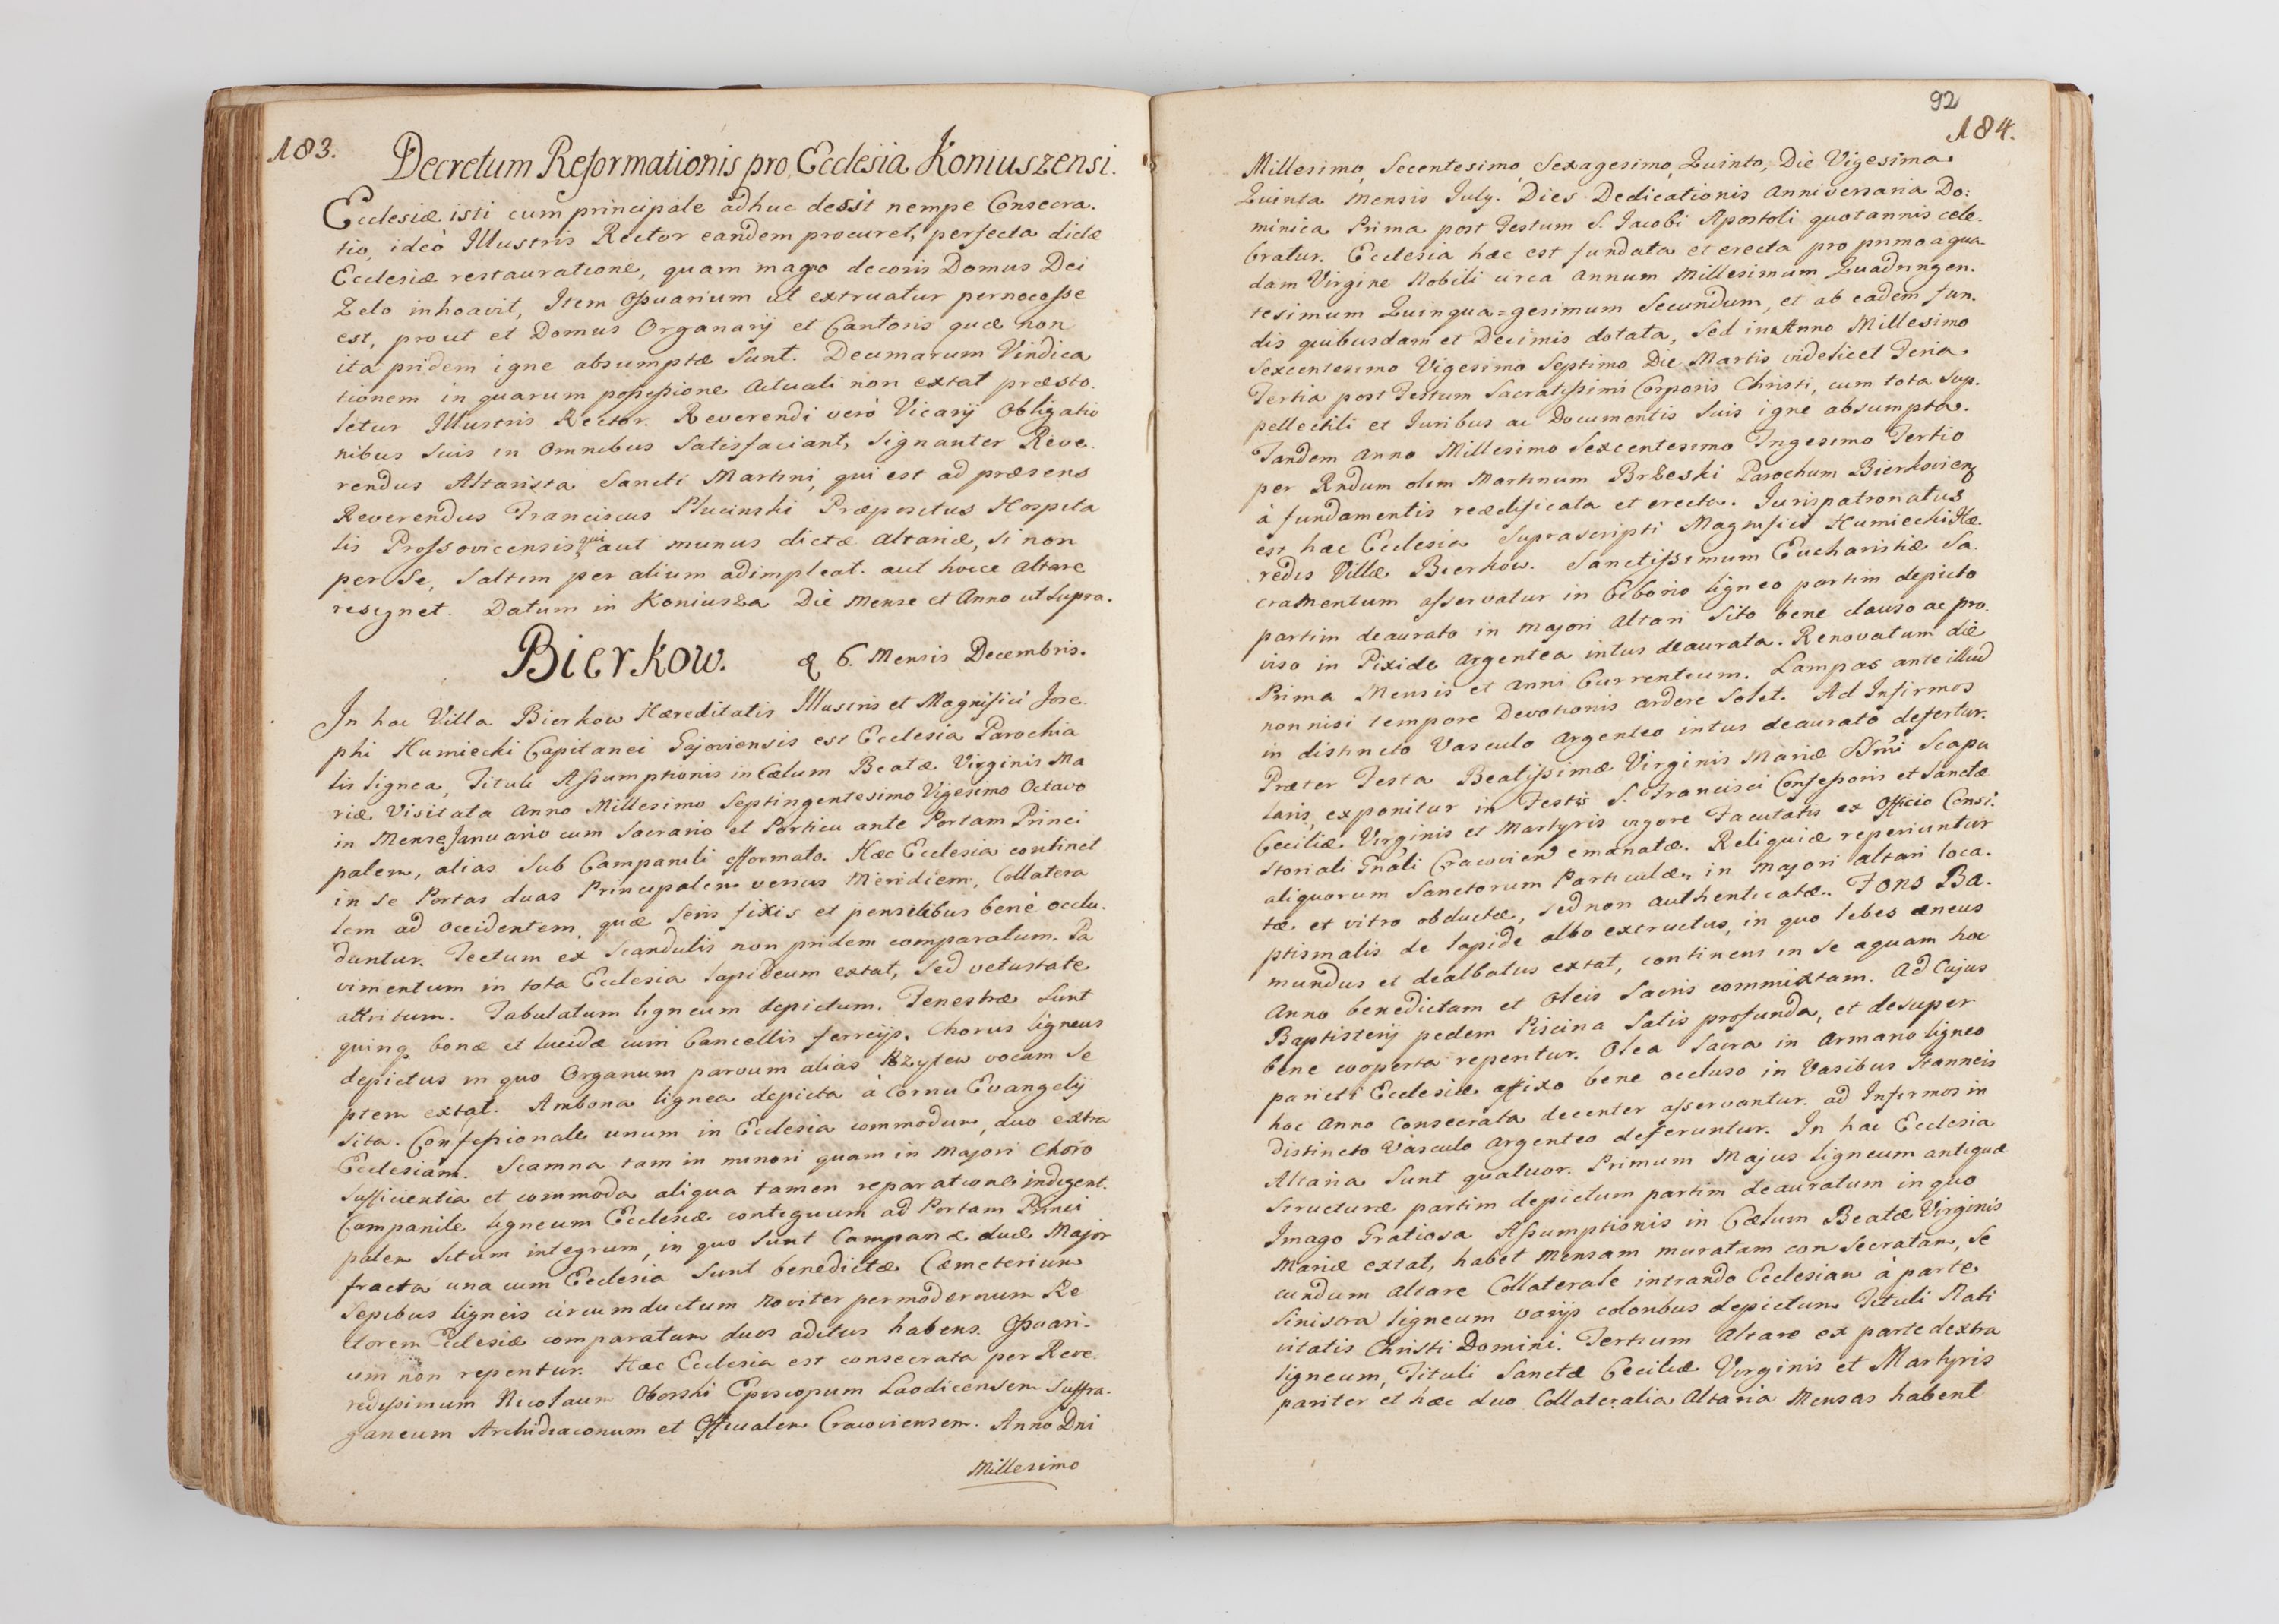 183.
Decretum Reformationis pro Ecclesia Koniuszensi.
Ecclesiæ isti cum principale adhuc desit nempe Consecra.
tio, ideò Illustris Rector eandem procuret, perfecta dictæ
Ecclesiæ restauratione, quam magno decoris Domus Dei
Zelo inhoavit, Item Ossuarium ut extruatur pernecesse
est, prout et Domus Organarij et Cantoris quæ non
ita pridem igne absumptæ sunt. Decimarum Vindica
tionem in quarum possessione Actuali non extat præsto.
letur Illustris Rector. Reverendi verò Vicarij Obligatio
nibus suis in omnibus satisfaciant, signanter Reve.
rendus Altarista Sancti Martini, qui est ad præsens
Reverendus Franciscus Plucinski Præpositus Hospita
lis Prossovicensis qui aut munus dictæ altariæ, si non
per se, saltim per alium adimpleat. aut hocce Altare
resignet. Datum in Koniusza Die Mense et Anno ut supra.
Bierkow. 6. Mensis Decembris.
In hac Villa Bierkow Hæreditatis Illustris et Magnifici Jose.
phi Humiecki Capitanei est Ecclesia Parochia
lis lignea, Tituli Assumptionis in Cœlum Beatæ Virginis Ma
riæ Visitata Anno Millesimo Septingentesimo Vigesimo Octavo
in Mense Januario cum Sacrario et Porticu ante Portam Princi
palem, alias sub Campanili efformato. Hæc Ecclesia continet
in se Portas duas Principalem versus Meridiem, Collatera
lem ad occidentem, quæ seris fixis et pensilibus benè occlu.
duntur. Tectum ex Scandulis non pridem comparatum. Pa
vimentum in tota Ecclesia lapideum extat, sed vetustate
attritum. Tabulatum ligneum depictum. Fenestræ sunt
quinq bonæ et lucidæ cum Cancellis ferreijs. Chorus ligneus
depictus in quo Organum parvum alias vocum Se
ptem extat. Ambona lignea depicta à Cornu Evangelij
sita. Confessionale unum in Ecclesia commodum, duo extra
Ecclesiam. Scamna tam in minori quam in Majori Choro
sufficientia et commoda aliqua tamen reparatione indigent.
Campanile ligneum Ecclesiæ contiguum ad Portam Princi
palem situm integrum, in quo sunt Campanæ duæ Major
fracta una cum Ecclesia sunt benedictæ Cæmeterium
sepibus ligneis circumductum noviter per modernum Re
ctorem Ecclesiæ comparatum duos aditus habens. Ossuari.
um non repertur. Hæc Ecclesia est consecrata per Reve.
redissimum Nicolaum Oborski Episcopum Laodicensem Suffra.
ganeum Archidiaconum et Officialem Cracoviensem. Anno Dni
Millesimo
92
184.
Millesimo, Secentesimo, Sexagesimo, Quinto, Die Vigesima
Quinta Mensis July. Dies Dedicationis anniversaria Do:
minica Prima post Festum S. Jacobi Apostoli quotannis cele.
bratur. Ecclesia hæc est fundata et erecta pro primo a qua
dam Virgine Nobili circa annum Millesimum Quadringen.
tesimum Quinqua=gesimum Secundum, et ab eadem fun.
dis quibusdam et Decimis dotata, sed in Anno Millesimo
Sexcentesimo Vigesimo Septimo Die Martis videlicet Feria
Tertia post Festum Sacratissimi Corporis Christi, cum tota sup.
pellectili et Iuribus ac Documentis suis igne absumpta.
Tandem anno Millesimo Sexcentesimo Trigesimo Tertio
per Rndum olim Martinum Brzeski Parochum Bierkovien
à fundamentis reædificata et erecta. Iurispatronatus
est hæc Ecclesia Suprascripti Magnifici Humiecki Hæ.
redis Villæ Bierkow. Sanctissimum Eucharistiæ Sa.
cramentum asservatur in Ciborio ligneo partim depicto
partim deaurato in Majori Altari sito bene clauso ac pro.
viso in Pixide argentea intus deaurata. Renovatum die
Prima Mensis et anni Currentium. Lampas ante illud
non nisi tempore Devotionis ardere solet. Ad Infirmos
in distincto Vasculo argenteo intus deaurato defertur.
Præter Festa Beatissimæ Virginis Mariæ SSmi Scapu
laris, exponitur in Festis S. Francisci Confessoris et Sanctæ
Ceciliæ Virginis et Martyris vigore Facutatis ex Officio Consi.
storiali Gnali Cracovien emanatæ. Reliquiæ reperiuntur
aliquorum Sanctorum Particulæ, in Majori altari loca.
tæ et vitro obductæ, sed non authenticatæ. Fons Ba.
ptismalis de lapide albo extructus, in quo lebes æneus
mundus et dealbatus extat, continens in se aquam hoc
Anno benedictam et Oleis Sacris commixtam. Ad Cujus
Baptisterij pedem Piscina Satis profunda, et desuper
bene cooperta repertur. Olea Sacra in Armario ligneo
parieti Ecclesiæ affixo bene occluso in Vasibus Stanneis
hoc Anno Consecrata decenter asservantur. ad Infirmos in
distincto Vasculo argenteo deferuntur. In hac Ecclesia
Altaria sunt quatuor. Primum Majus ligneum antiquæ
structuræ partim depictum partim deauratum in quo
Imago Gratiosa Assumptionis in Cœlum Beatæ Virginis
Mariæ extat, habet Mensam muratam consecratam, Se
cundum altare Collaterale intrando Ecclesiam à parte
sinistra ligneum varijs coloribus depictum Tituli Nati
vitatis Christi Domini. Tertium Altare ex parte dextra
ligneum, Tituli Sanctæ Ceciliæ Virginis et Martyris
pariter et hæc duo Collateralia Altaria Mensas habent